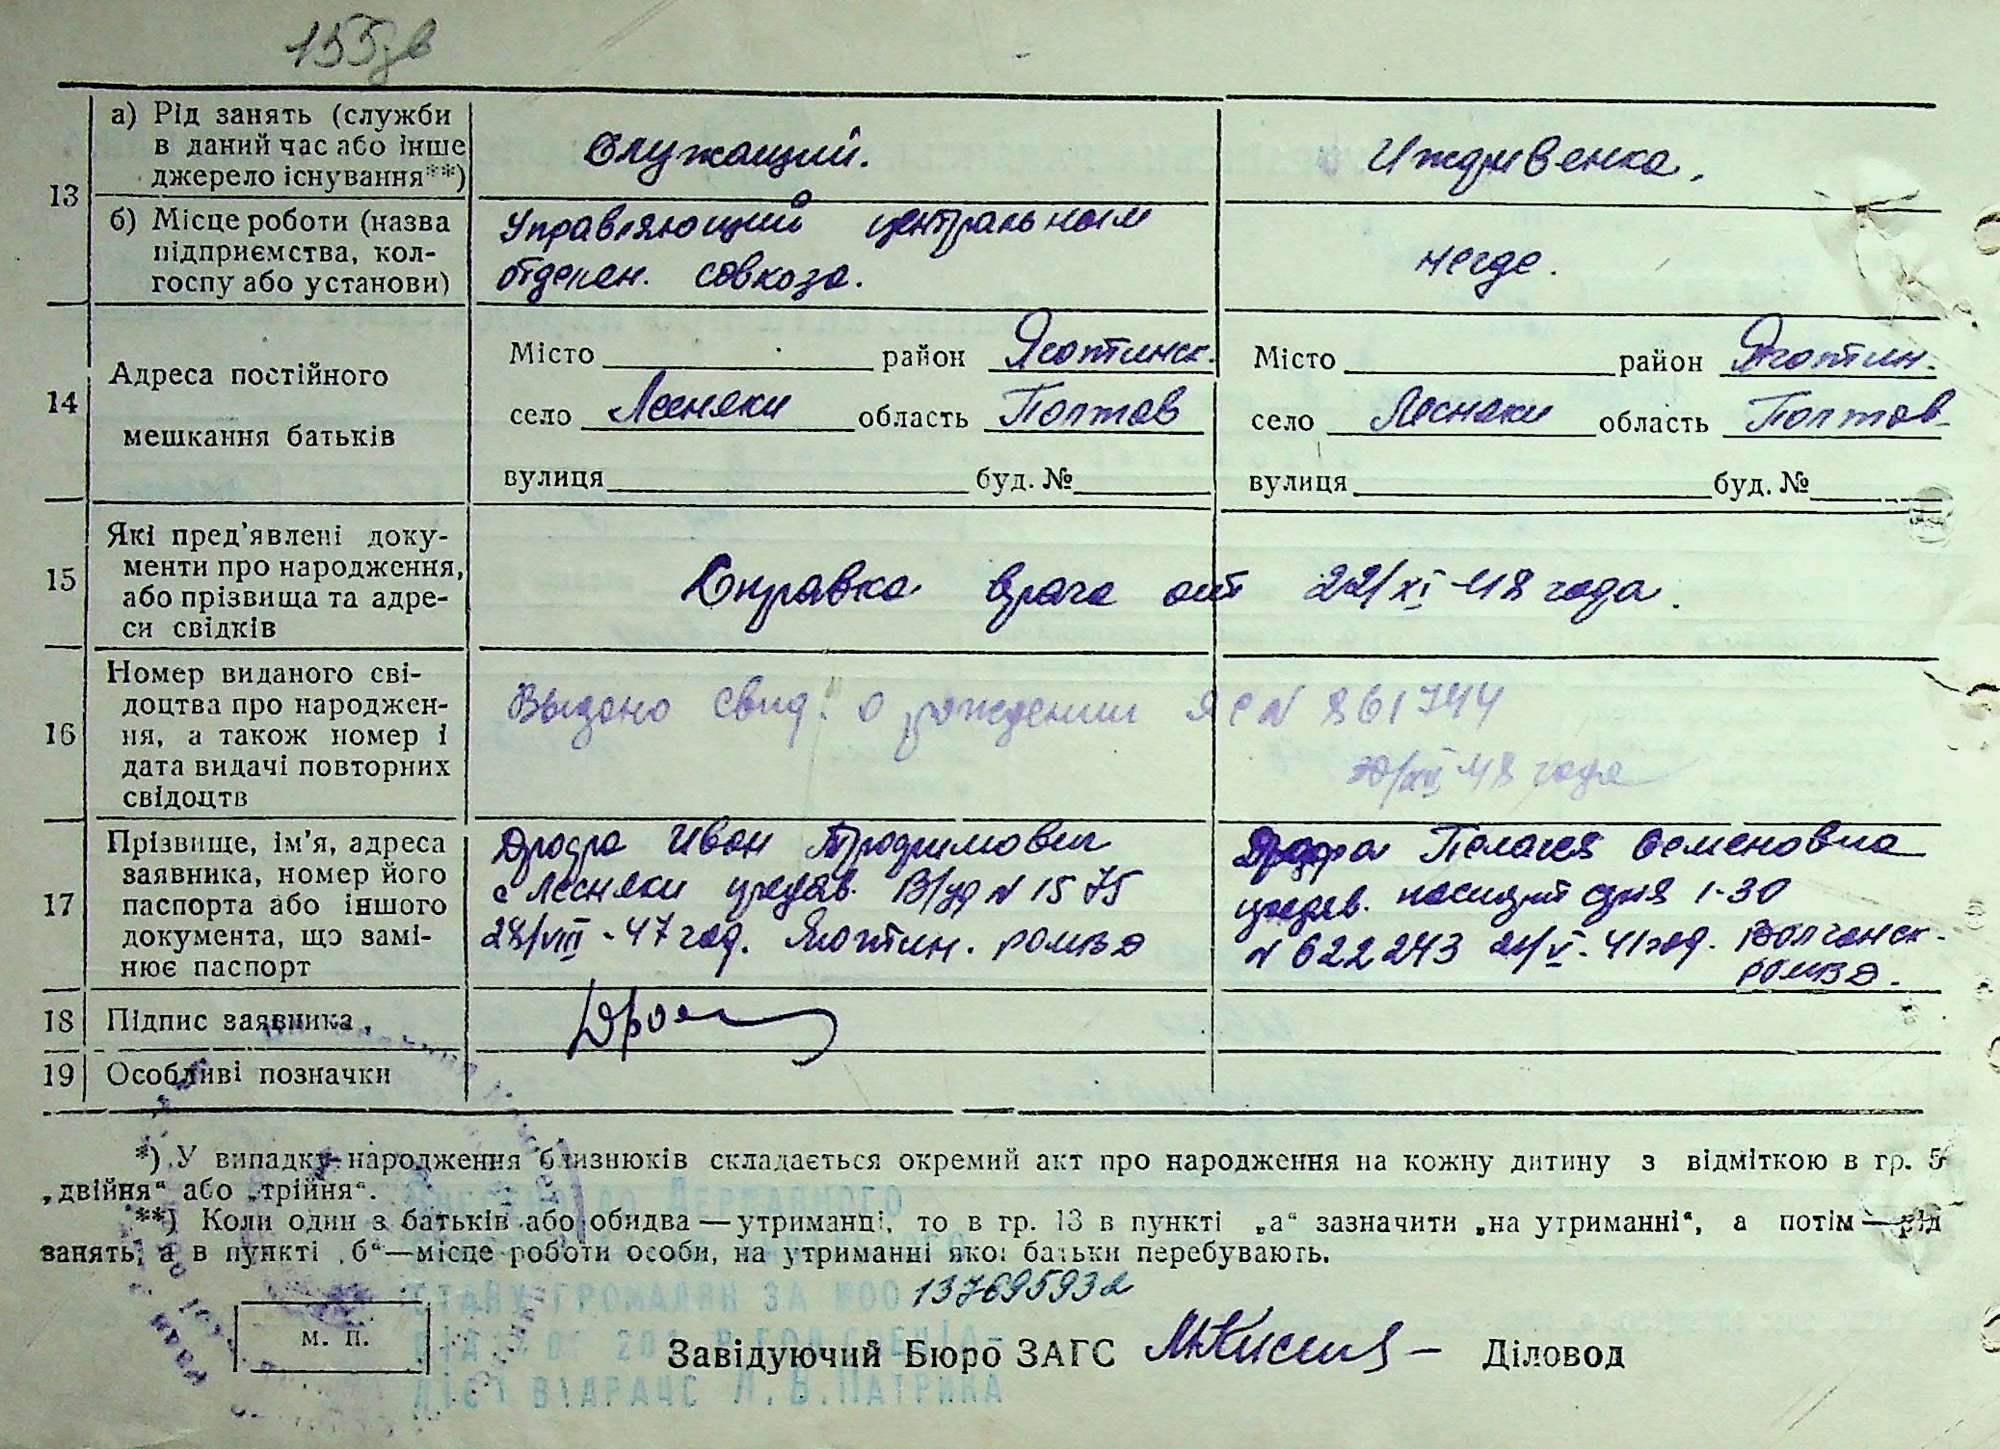 155зв
13
а) Рід занять (служби
в даний час або інше
джерело існування**)
Служащий.
Иждивенка.
б) Місце роботи (назва
підприємства, кол-
госпу або установи)
Управляющий центральным
отделен. совхоза.
негде.
14
Адреса постійного
мешкання батьків
Місто район Яготинск.
село Лесняки область Полтав
вулиця буд. №
Місто район Яготин.
село Лесняки область Полтав
вулиця буд. №
15
Які пред'явлені доку-
менти про народження,
або прізвища та адре-
си свідків
Справка врача от 22/XI-48 года.
16
Номер виданого сві-
доцтва про народжен-
ня, а також номер і
дата видачі повторних
свідоцтв
Выдано свид. о рождении ЯС N 861744
30/XII 48 года
17
Прізвище, ім'я, адреса
заявника, номер його
паспорта або іншого
документа, що замі-
нює паспорт
Иван
с Лесняки предяв. В/уд N 1575
28/VIII-47 год. Яготин. РОМВД
Пелагея Семеновна
предяв. паспорт 1-30
N 622243 41 год. Волчанск.
РОМВД.
18
Підпис заявника
19
Особливі позначки
*) У випадку народження близнюків складається окремий акт про народження на кожну дитину з відміткою в гр. 5
„двійня“ або „трійня“.
**) Коли один з батьків або обидва — утриманці, то в гр. 13 в пункті „а“ зазначити „на утриманні“, а потім — рід
занять, а в пункті „б“ — місце роботи особи, на утриманні якої батьки перебувають.
137695932
м. п.
Завідуючий Бюро ЗАГС
Діловод